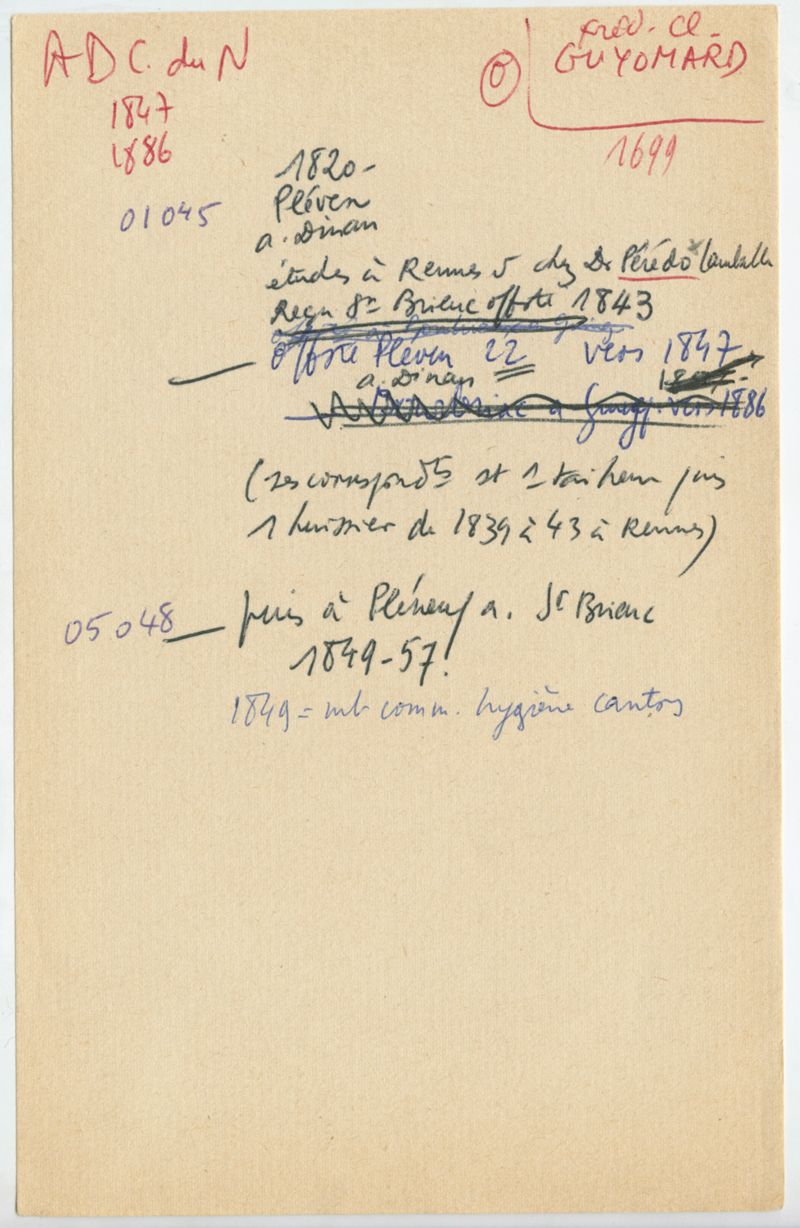 ADC. du N
1847
1886
fréd. Cl.
GUYOMARD
O
1699
01045
1820 -
Pléven
a. Dinan
études à Rennes & chez Dr Pérédo x Lamballe
Reçu St Brieuc offste 1843
offste Pléven 22 vers 1847
a. Dinan
a Guingp. vers 1886
(ses correspondts st 1 tailleur puis
1 huissier de 1839 à 43 à Rennes)
05048 puis à Pléneuf a. St Brieuc
1849-57.
1849 = mb comm. hygiène canton